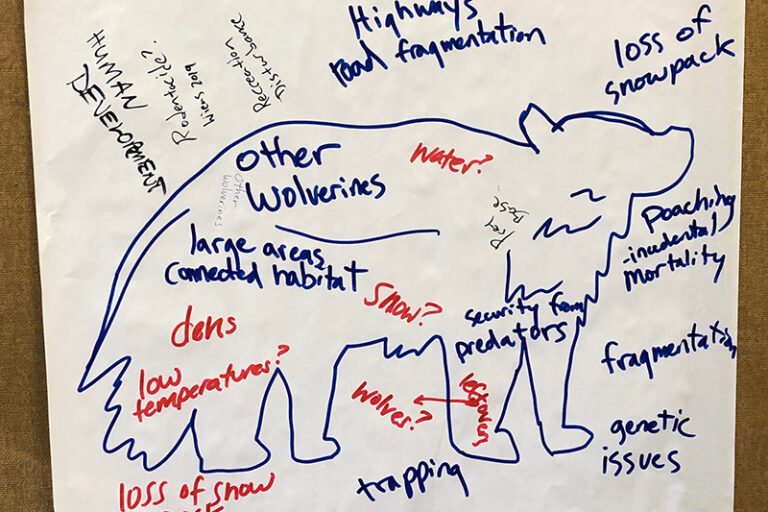 Highways
road fragmentation
loss of
snowpack
HUMAN
DEVELOPMENT
Rodenticide?
Wiens 2019
Recreation
Disturbance
other
wolverines
Other
wolverines
water?
Prey
Base
poaching
-incidental
mortality
large areas
connected habitat
snow?
security from
predators
dens
low
temperatures?
wolves?
leftovers
fragmentation
genetic
issues
trapping
loss of snow